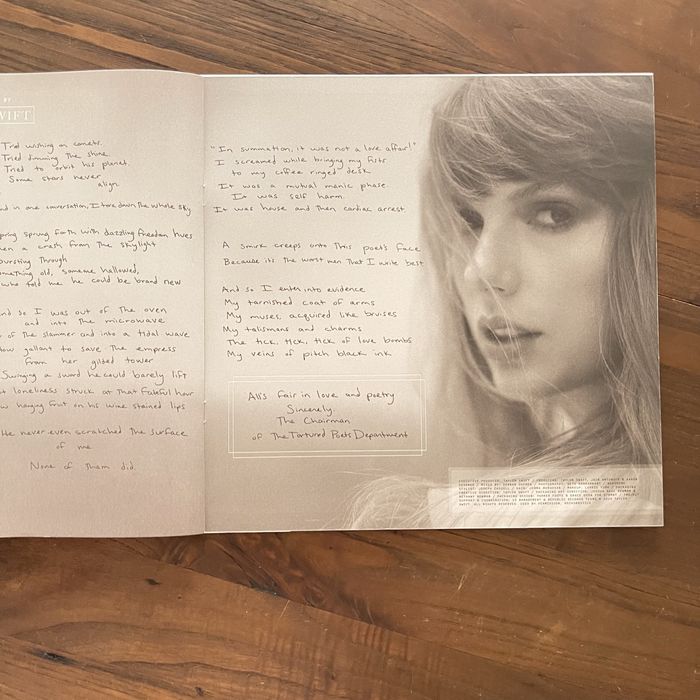 BY
WIFT
Tried wishing on comets.
Tried dimming the shine.
Tried to orbit his planet.
Some stars never
align.
nd in one conversation, I tore down the whole sky
pring sprung forth with dazzling freedom hues
hen a crash from the skylight
bursting through
omething old, someone hallowed,
who told me he could be brand new
nd so I was out of the oven
and into the microwave
of the slammer and into a tidal wave
How gallant to save the empress
from her gilded tower
Swinging a sword he could barely lift
t loneliness struck at that fateful hour
w hanging fruit on his wine stained lips
He never even scratched the surface
of me
None of them did.
"In summation, it was not a love affair!"
I screamed while bringing my fists
to my coffee ringed desk
It was a mutual manic phase.
It was self harm.
It was house and then cardiac arrest
A smirk creeps onto this poet's face
Because it's the worst men that I write best
And so I enter into evidence
My tarnished coat of arms
My muses, acquired like bruises
My talismans and charms
The tick, tick, tick of love bombs
My veins of pitch black ink
All's fair in love and poetry
Sincerely,
The Chairman
of The Tortured Poets Department
EXECUTIVE PRODUCER: TAYLOR SWIFT / PRODUCERS: TAYLOR SWIFT, JACK ANTONOFF & AARON